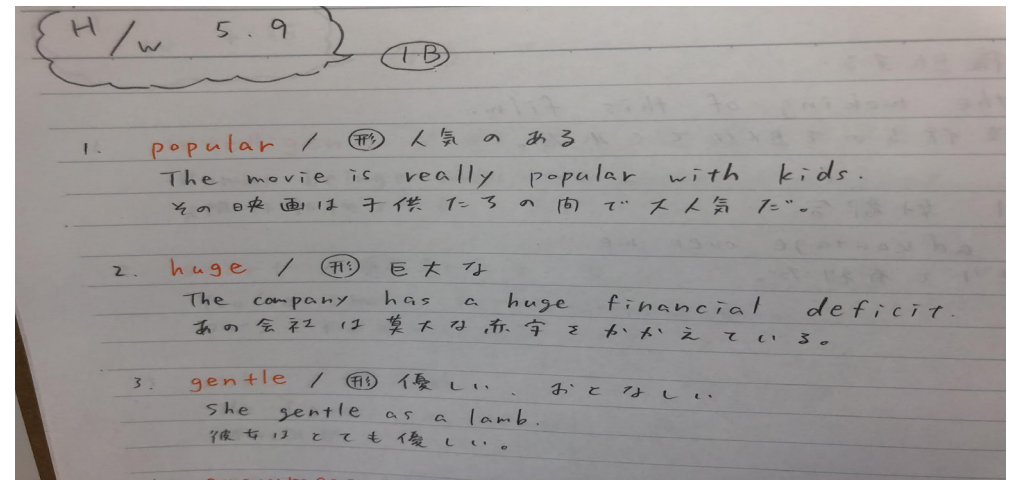 H/w 5.9
1-B
1. popular / 形 人気のある
The movie is really popular with kids.
その映画は子供たちの間で大人気だ。
2. huge / 形 巨大な
The company has a huge financial deficit.
あの会社は莫大な赤字をかかえている。
3. gentle / 形 優しい、おとなしい
She gentle as a lamb.
彼女はとても優しい。